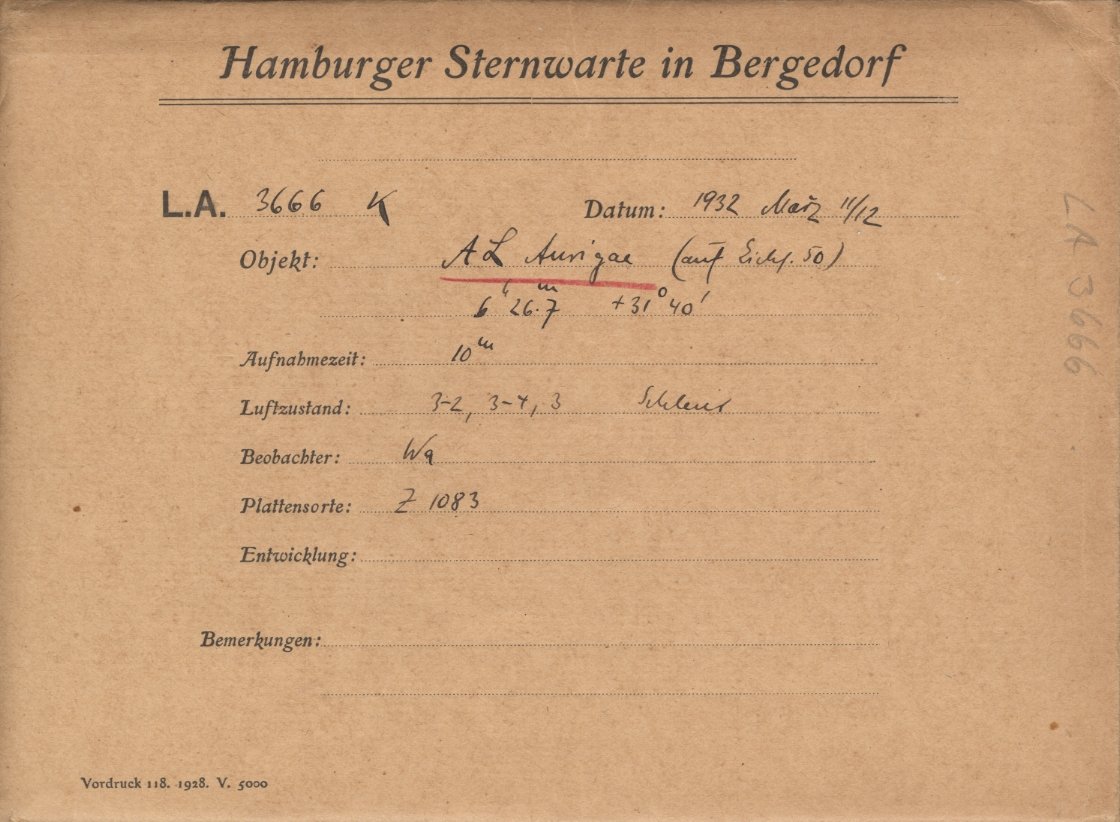 Hamburger Sternwarte in Bergedorf
L.A. 3666 K Datum: 1932 März 11/12
Objekt: AL Aurigae (auf Eichf. 50)
6h 26.7m +31° 40'
Aufnahmezeit: 10m
Luftzustand: 3-2, 3-4, 3
Beobachter: Wa
Plattensorte: Z 1083
Entwicklung:
Bemerkungen:
Vordruck 118. 1928. V. 5000
LA 3666